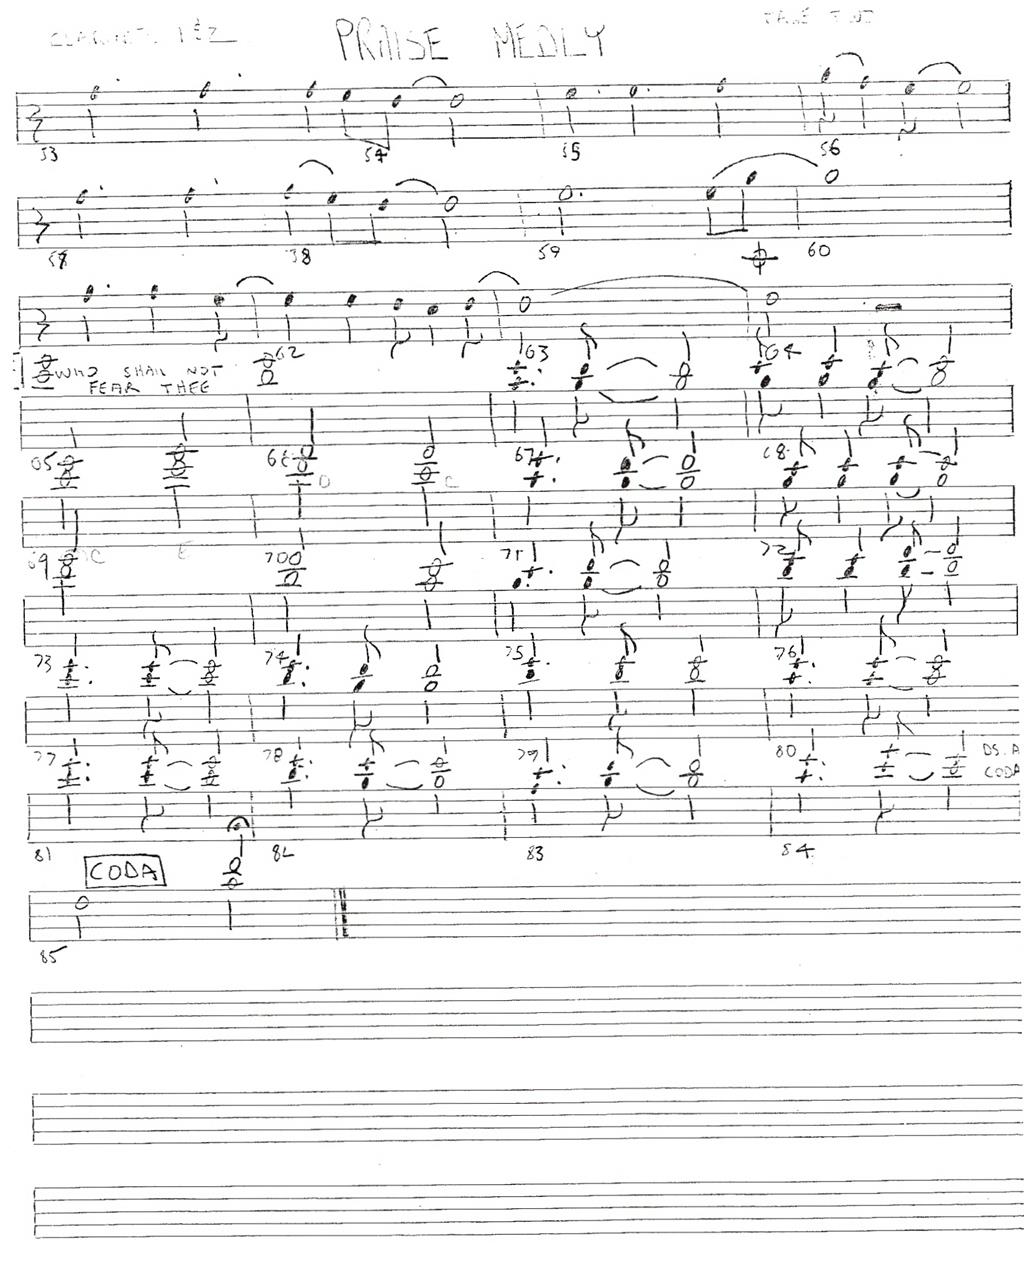 CLARINETS 1&2 PRAISE MEDLY PAGE TWO
53 54 55 56
57 38 59 60
62 63 64
WHO SHALL NOT
FEAR THEE
65 66 67 68
D C
69 C E 70 71 72
73 74 75 76
77 78 79 80 DS. A
CODA
81 82 83 84
CODA
85